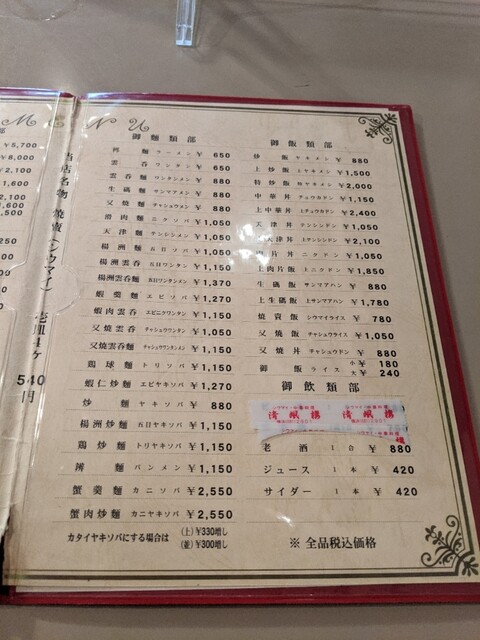 M E N U
部
¥5,700
¥8,000
¥2,100
1,600
¥2,100
1,600
,500
,250
当店名物 焼賣(シウマイ) 壱皿4ケ 540円
御麵類部
麵 ラーメン ¥ 650
雲呑 ワンタン ¥ 650
雲呑麵 ワンタンメン ¥ 880
生碼麵 サンマアメン ¥ 880
叉焼麵 チャシュウメン ¥ 880
滑肉麵 ニクソバ ¥1,050
天津麵 テンシンメン ¥1,050
楊洲麵 五目ソバ ¥1,050
楊洲雲呑 五目ワンタン ¥1,150
楊洲雲呑麵 五目ワンタンメン ¥1,370
蝦羹麵 エビソバ ¥1,270
蝦肉雲呑 エビニクワンタン ¥1,150
叉焼雲呑 チャシュウワンタン ¥1,050
叉焼雲呑麵 チャシュウワンタンメン ¥1,150
鶏球麵 トリソバ ¥1,150
蝦仁炒麵 エビヤキソバ ¥1,270
炒麵 ヤキソバ ¥ 880
楊洲炒麵 五目ヤキソバ ¥1,150
鶏炒麵 トリヤキソバ ¥1,150
辦麵 バンメン ¥1,150
蟹羹麵 カニソバ ¥2,550
蟹肉炒麵 カニヤキソバ ¥2,550
カタイヤキソバにする場合は (上)¥330増し
(並)¥300増し
御飯類部
炒飯 ヤキメシ ¥ 880
上炒飯 上ヤキメシ ¥1,500
特炒飯 特ヤキメシ ¥2,000
中華丼 チュウカドン ¥1,150
上中華丼 上チュウカドン ¥2,400
天津丼 テンシンドン ¥1,050
上天津丼 上テンシンドン ¥2,100
肉片丼 ニクドン ¥1,050
上肉片飯 上ニクドン ¥1,850
生碼飯 サンマアハン ¥ 880
上生碼飯 上サンマアハン ¥1,780
焼賣飯 シウマイライス ¥ 780
叉焼飯 チャシュウライス ¥1,050
叉焼丼 チャシュウドン ¥ 880
御飯 ライス 小 ¥ 180
大 ¥ 240
御飲類部
シウマイ・中華料理
清風樓
老酒 1合 ¥ 880
ジュース 1本 ¥ 420
サイダー 1本 ¥ 420
※ 全品税込価格